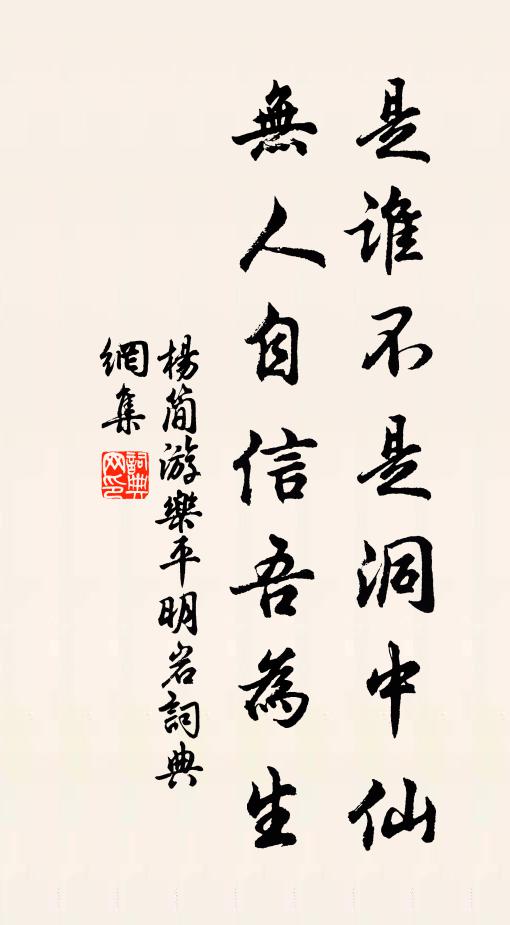 是誰不是洞中仙
無人自信吾為生
楊簡游樂平明岩詞典
網集
詞典
网印